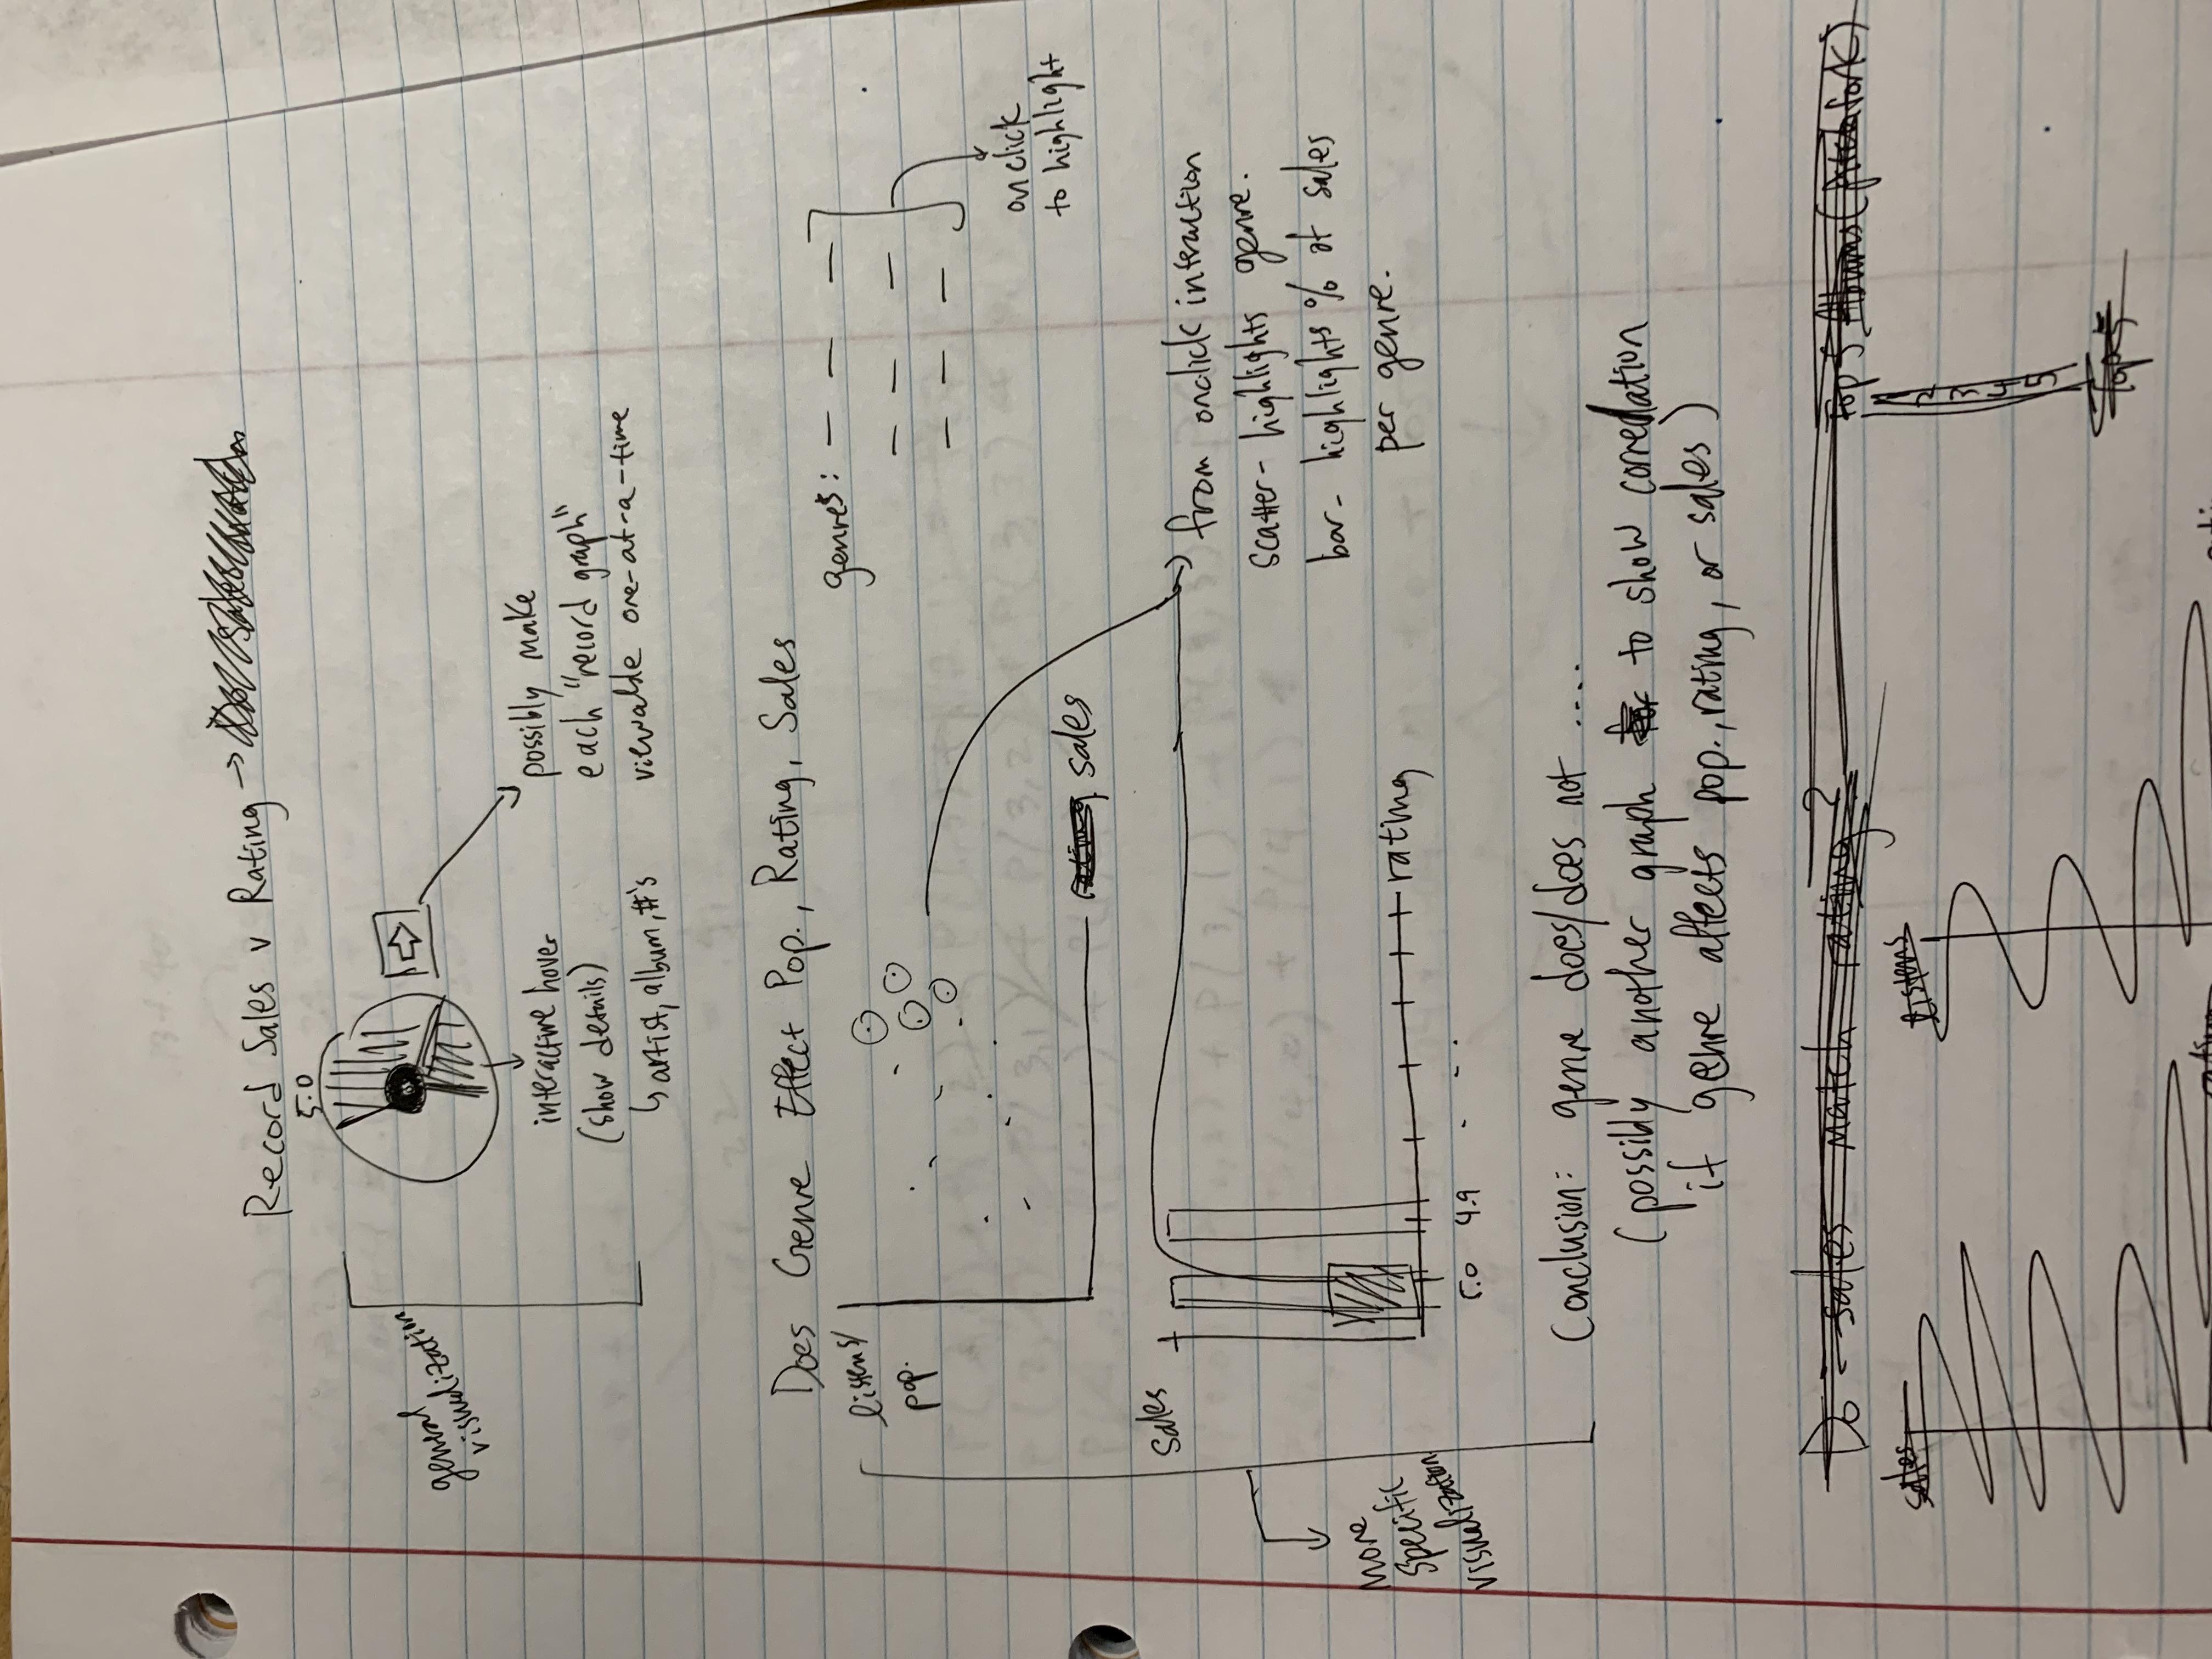 Record Sales v Rating →
5.0
general
visualization
interactive hover
(show details)
↳ artist, album, #'s
possibly make
each "record graph"
viewable one-at-a-time
Does Genre Effect Pop., Rating, Sales
listens/
pop.
genres:
onclick
to highlight
rating sales
Sales
from onclick interaction
scatter- highlights genre.
bar- highlights % of sales
per genre.
rating
5.0 4.9
More
Specific
visualization
Conclusion: genre does/does not ....
(possibly another graph for to show correlation
if genre affects pop., rating, or sales)
Do sales match rating?
Top 5 Albums (pitchfork)
sales
listens
1
2
3
4
5
Top 5
rating